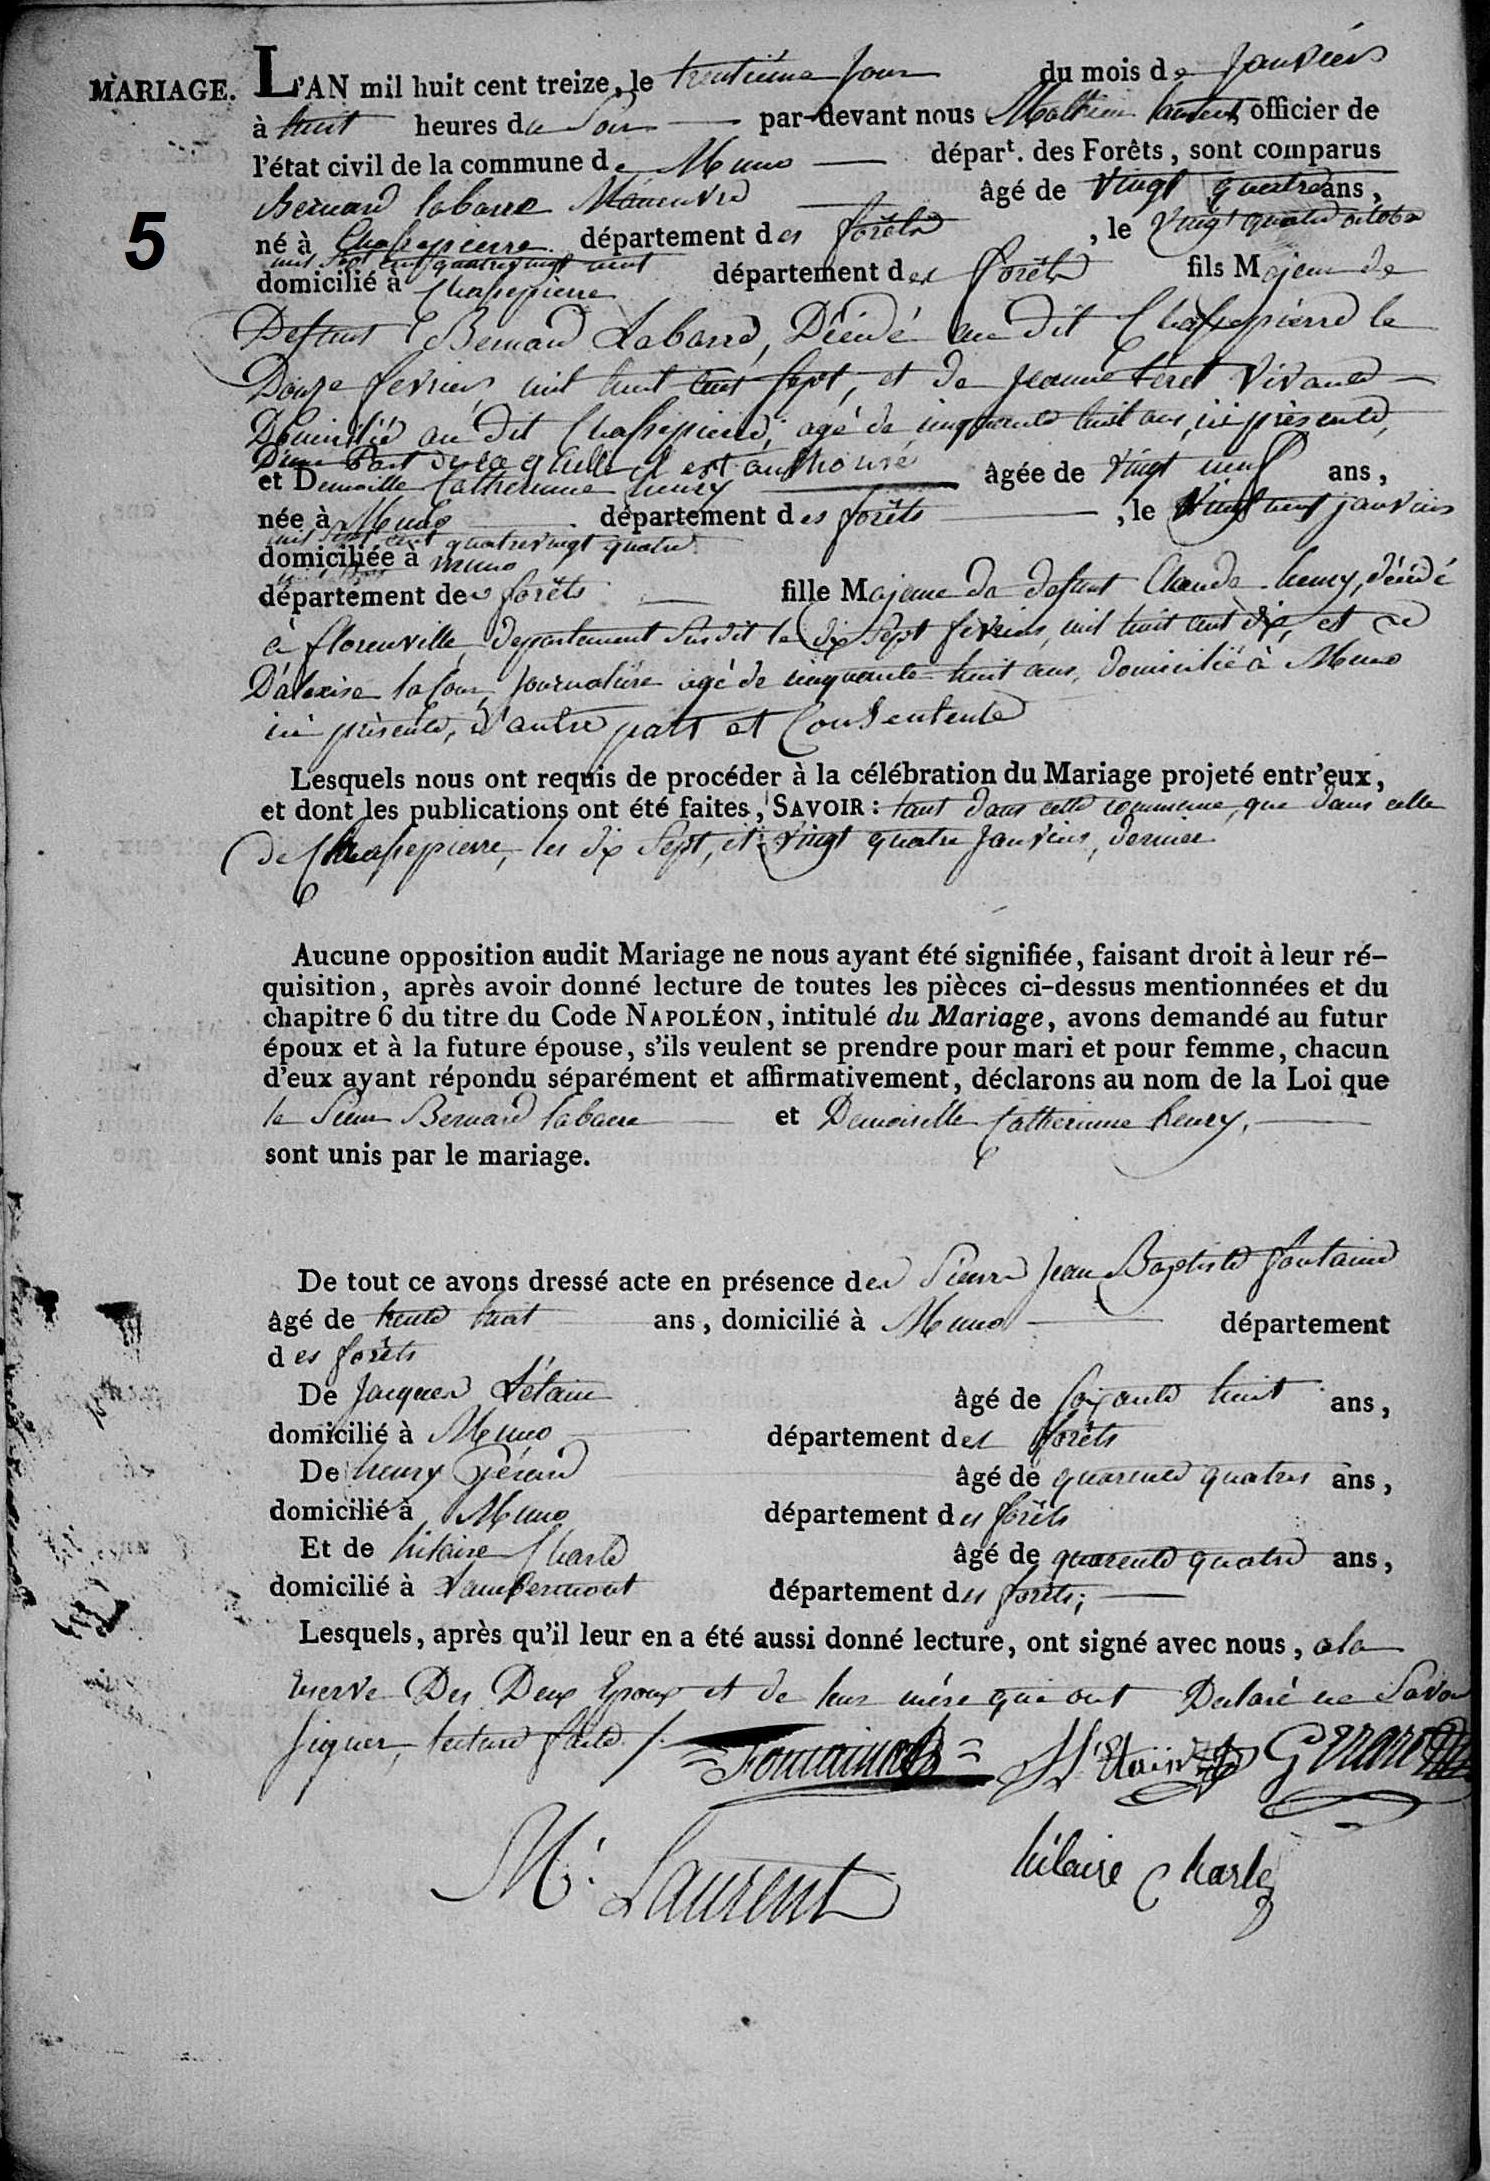 MARIAGE. L'AN mil huit cent treize, le trentième jour du mois de Janvier
à huit heures du Soir par-devant nous Mathieu laurent officier de
l'état civil de la commune de Muno départ. des Forêts, sont comparus
Bernard labarre Manœuvre âgé de Vingt quatre ans,
5
né à Chassepierre département des forêts, le Vingt quatre octobre
mil sept cent quatre vingt huit
domicilié à Chassepierre département des forêts fils Majeur de
Deffunt Bernard Labarre, Décédé au dit Chassepierre le
Douze fevrier mil huit cent sept, et de jeanne Vivante
Domicilié au dit Chassepierre, agé de cinquante huit ans, ici présente,
D'une Part de la quelle il est authorisé
et Demoille Catherinne henry âgée de vingt neuf ans,
née à Muno département des forêts, le Vingt neuf janvier
mil sept cent quatrevingt quatre
domiciliée à muno
département des forêts fille Majeure de deffunt Claude henry, décédé
à florenville, departement susdit le dix sept fevrier, mil huit cent dix, et de
D'alexise lacour journalière agé de cinquante huit ans, domicilié à Muno
ici présente, d'autre part et Consentente
Lesquels nous ont requis de procéder à la célébration du Mariage projeté entr'eux,
et dont les publications ont été faites, SAVOIR : tant dans cette commune, que dans celle
de Chassepierre, les dix sept, et vingt quatre janvier, dernier
Aucune opposition audit Mariage ne nous ayant été signifiée, faisant droit à leur ré-
quisition, après avoir donné lecture de toutes les pièces ci-dessus mentionnées et du
chapitre 6 du titre du Code NAPOLÉON, intitulé du Mariage, avons demandé au futur
époux et à la future épouse, s'ils veulent se prendre pour mari et pour femme, chacun
d'eux ayant répondu séparément et affirmativement, déclarons au nom de la Loi que
le Sieur Bernard labarre et Demoiselle Catherinne henry,
sont unis par le mariage.
De tout ce avons dressé acte en présence des Sieurs Jean Baptiste fontaine
âgé de trente huit ans, domicilié à Muno département
des forêts
De Jacques Létain âgé de soixante huit ans,
domicilié à Muno département des forêts
De henry Gérard âgé de quarente quatres ans,
domicilié à Muno département des forêts
Et de hilaire Charle âgé de quarente quatre ans,
domicilié à Lambermont département des forêts;
Lesquels, après qu'il leur en a été aussi donné lecture, ont signé avec nous, ala
reserve Des Deux Epoux et de leur mére qui ont Declaré ne Savoir
signer, lecture faite ./.
hilaire Charle
M. Laurent